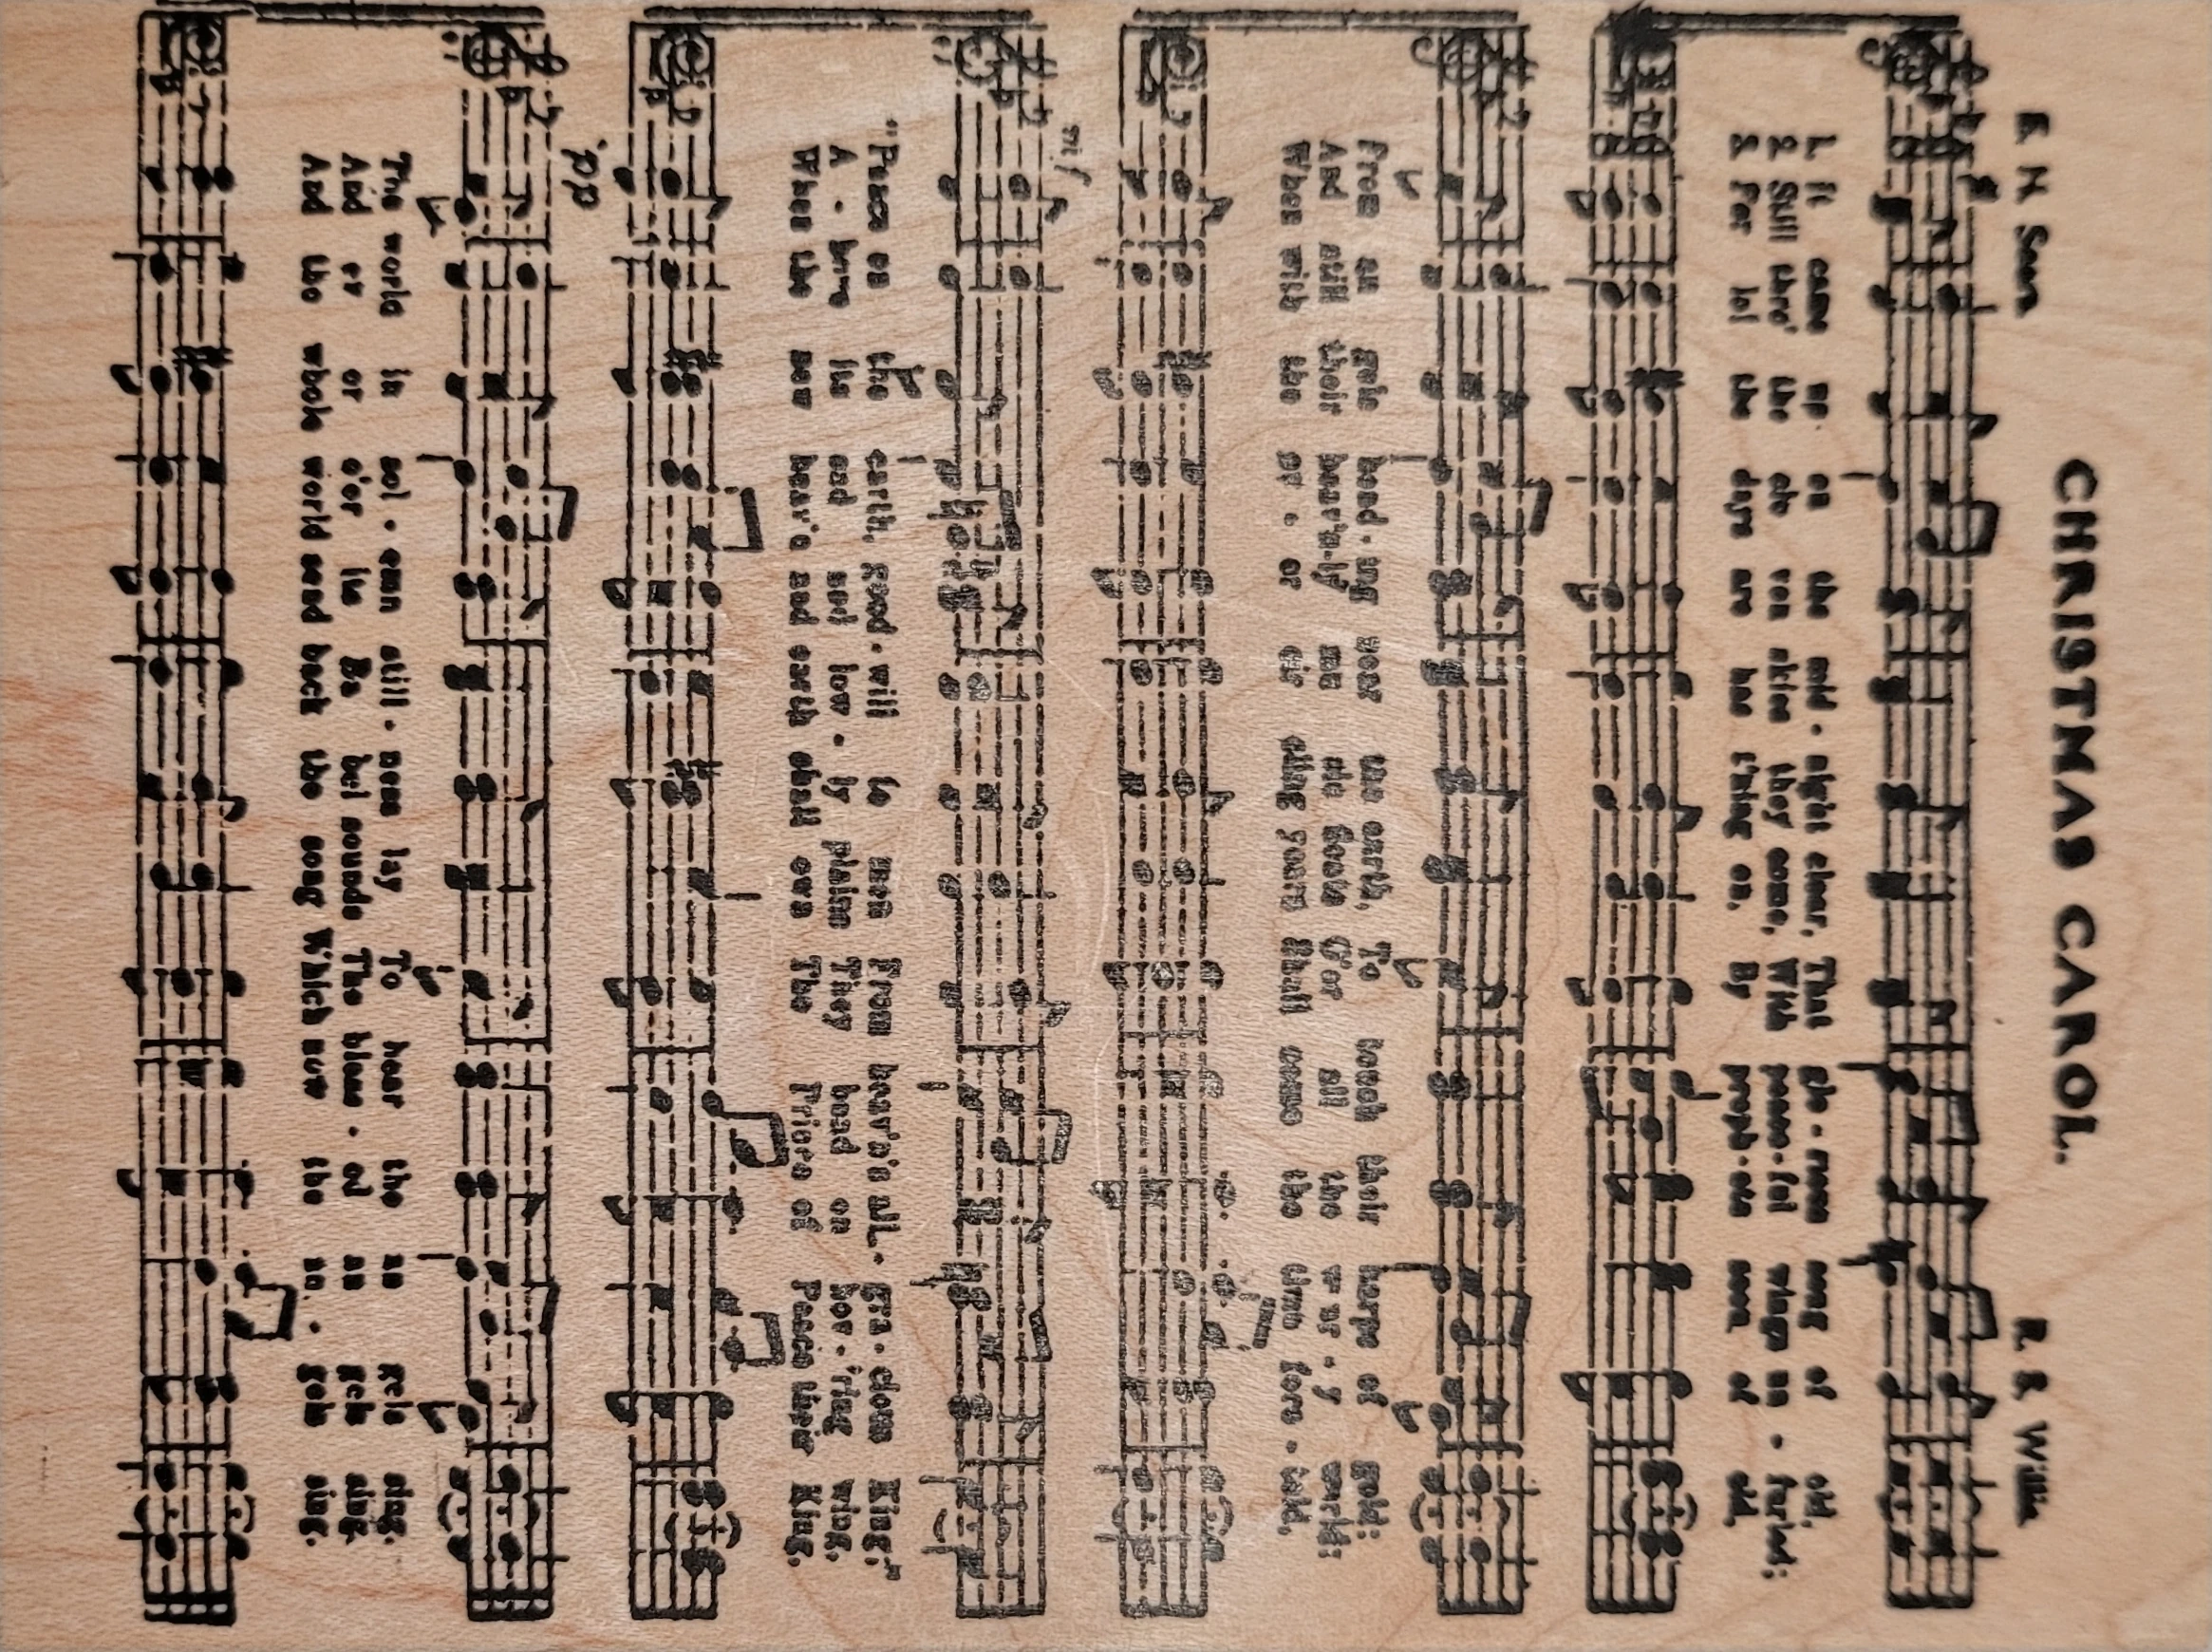 CHRISTMAS CAROL.
R. S. Willis
1. It came up on the mid - night clear, That glo - rious song of old,
2. Still thro' the clo - ven skies they come, With peace - ful wings un - furled;
3. For lo! the days are has t'ning on, By proph - ets seen of old,
From an gels bend - ing near the earth, To touch their harps of gold:
And still their heav'n-ly mu sic floats O'er all the w - ar - y world:
When with the ev - er cir cling years Shall come the time fore - told,
mf
"Peace on the earth, good - will to men From heav'n's all - gra - cious King."
A - bove its sad and low - ly plains They bend on hov - 'ring wing,
When the new heav'n and earth shall own The Prince of Peace their King,
pp
The world in sol - emn still - ness lay To hear the an gels sing.
And ev er o'er its Ba bel sounds The bless - ed an gels sing.
And the whole world send back the song Which now the an - gels sing.